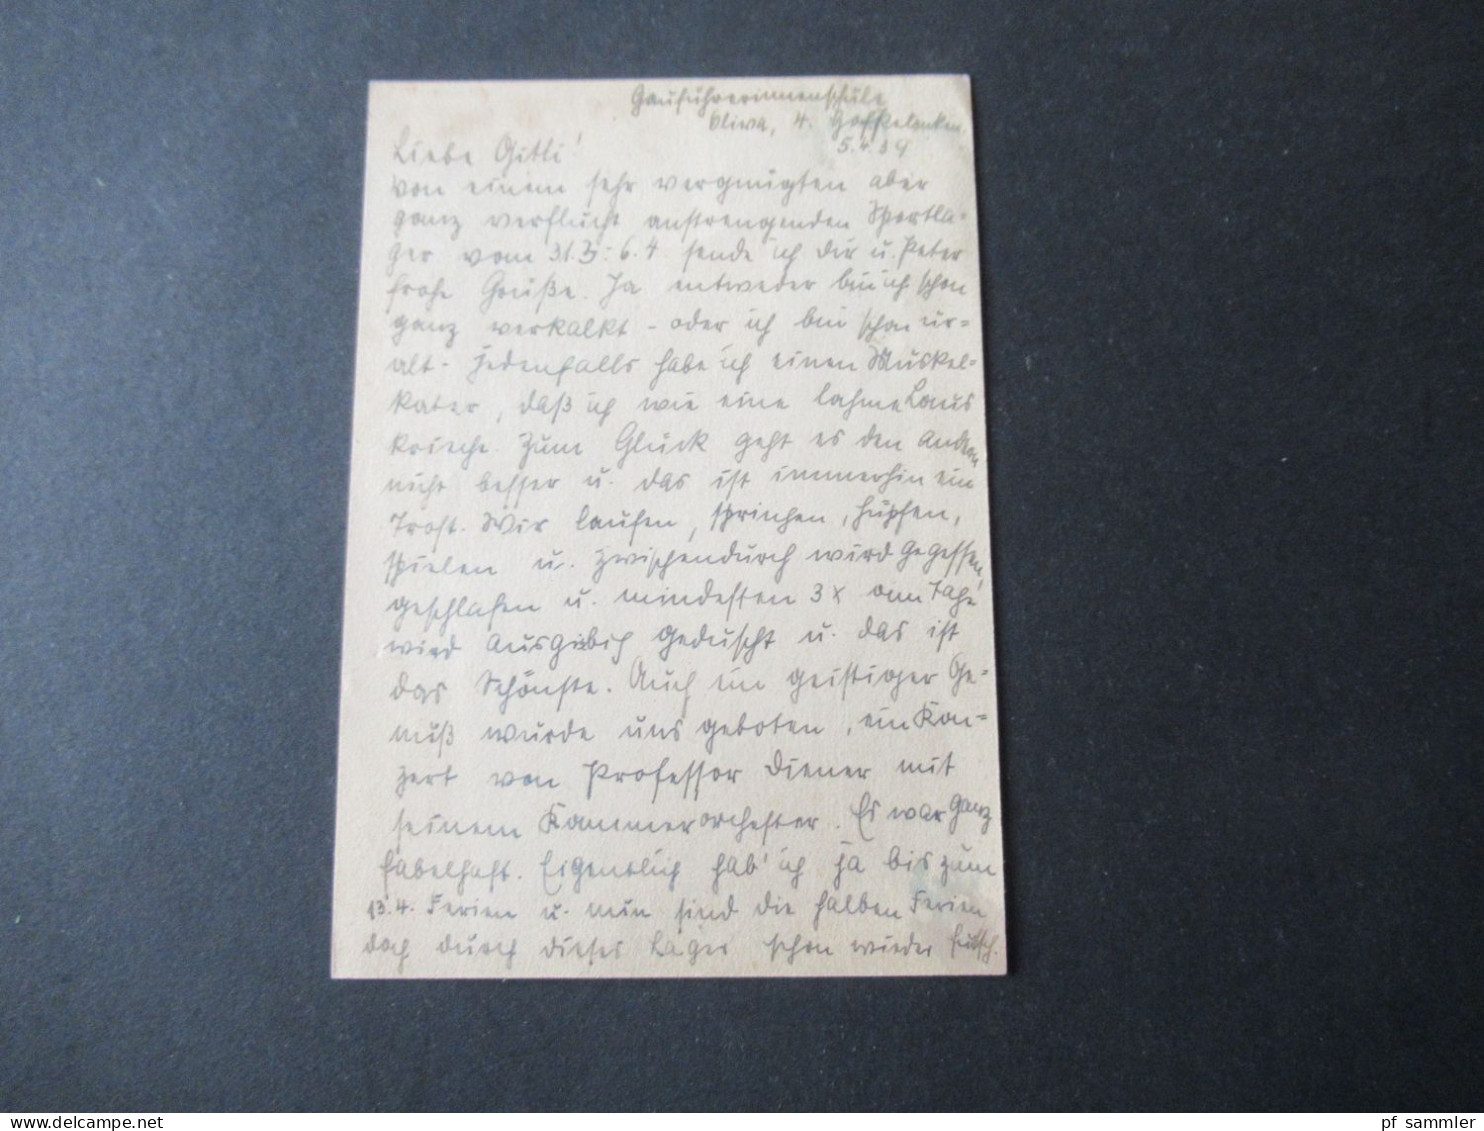 Gauführerinnenschule
Oliva, 4.
5.4.39
Liebe Gitti!
Von einem sehr vergnügten aber
ganz verflucht anstrengenden Sportla-
ger vom 31.3.-6.4 sende ich dir u. Peter
frohe Grüße. Ja entweder bin ich schon
ganz verkalkt - oder ich bin schon ur-
alt - jedenfalls habe ich einen Muskel-
kater, daß ich wie eine lahme Laus
krieche. Zum Glück geht es den Andren
nicht besser u. das ist immerhin ein
Trost. Wir laufen, sprinchen, hüpfen,
spielen u. zwischendurch wird gegessen,
geschlafen u. mindesten 3x am Tage
wird ausgibich geduscht u. das ist
das Schönste. Auch ein geistiger Ge-
nuß wurde uns geboten, ein Kon-
zert von Professor Diener mit
seinem Kammerorchester. Es war ganz
fabelhaft. Eigentlich hab' ich ja bis zum
13.4. Ferien u. nun sind die halben Ferien
doch durch dieses Lager schon wieder futsch.
pf sammler